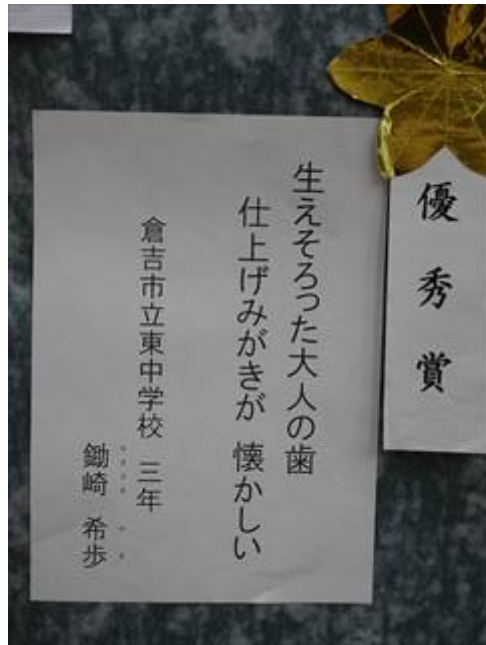 優秀賞
生えそろった大人の歯
仕上げみがきが 懐かしい
倉吉市立東中学校 三年
鋤崎 希歩